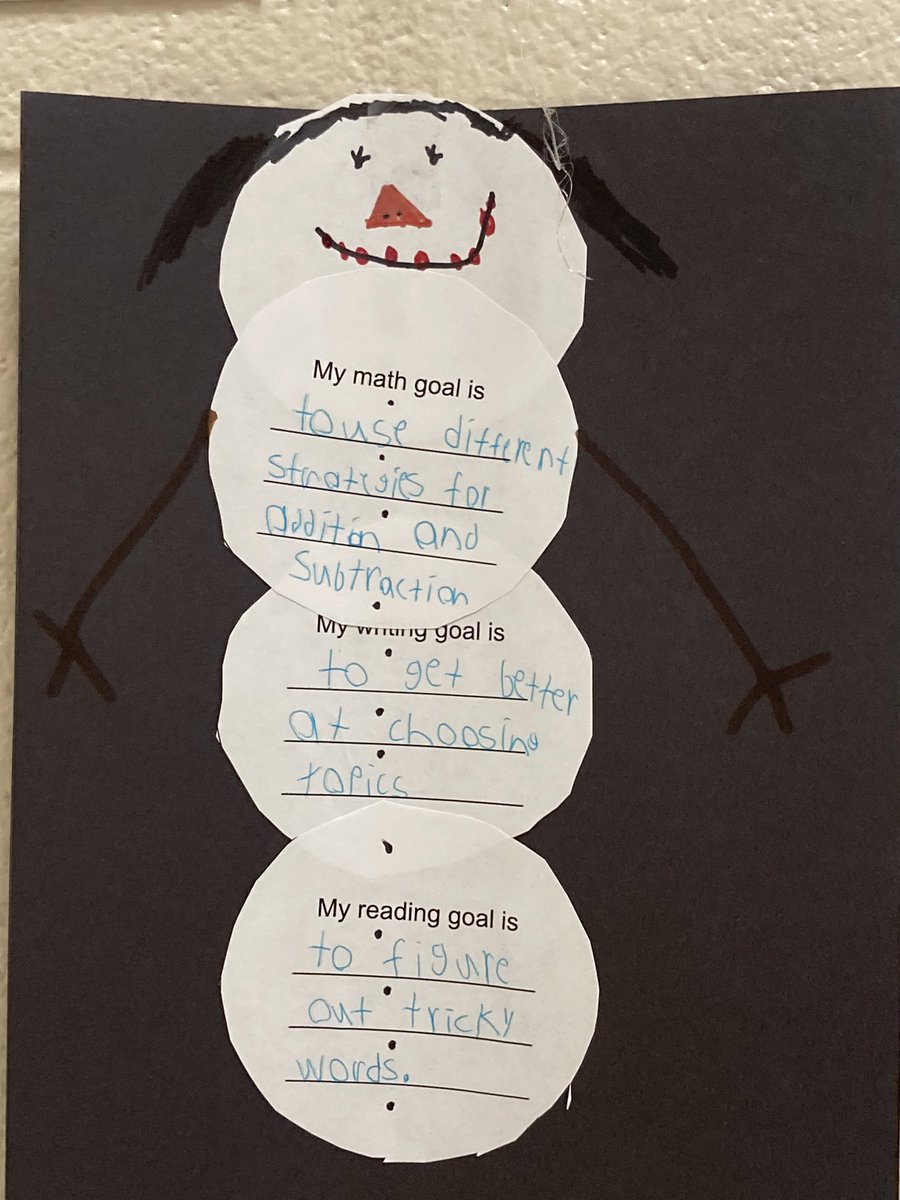 My math goal is
to use different
stratigies for
additin and
subtraction
My writing goal is
to get better
at choosing
topics
My reading goal is
to figure
out tricky
words.